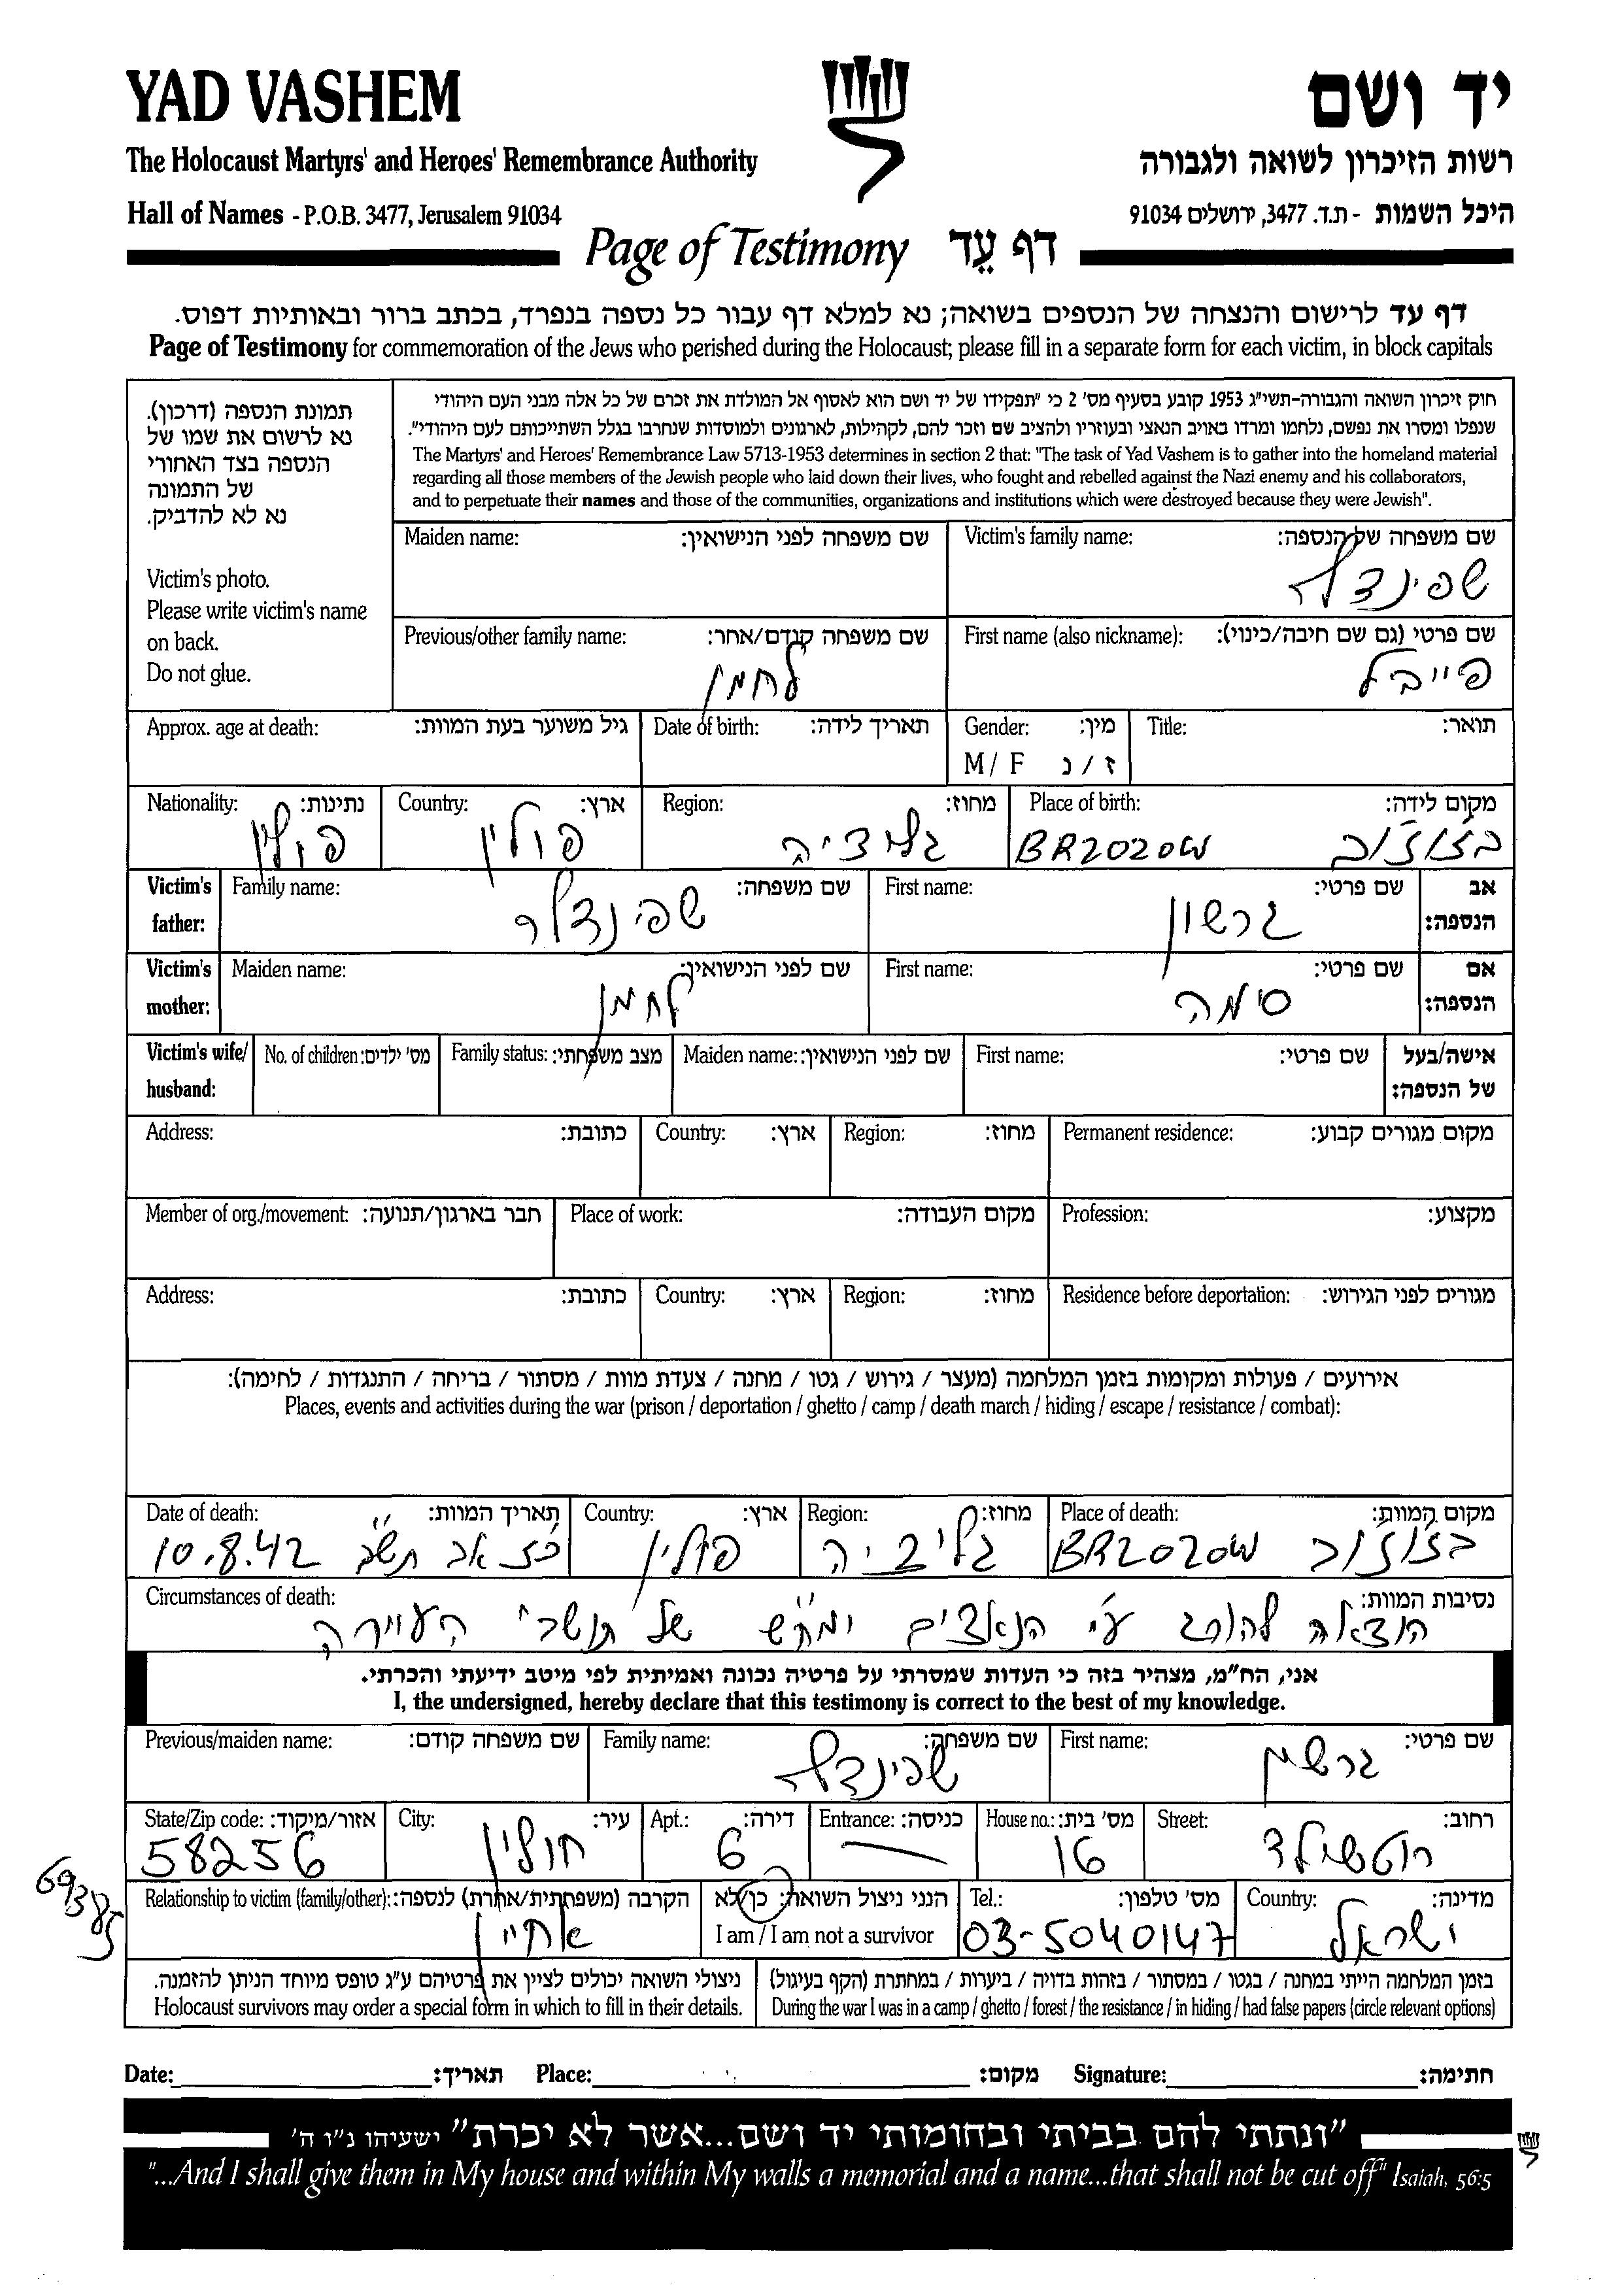 YAD VASHEM
יד ושם
The Holocaust Martyrs' and Heroes' Remembrance Authority
רשות הזיכרון לשואה ולגבורה
Hall of Names - P.O.B. 3477, Jerusalem 91034
היכל השמות - ת.ד. 3477, ירושלים 91034
Page of Testimony דף עֵד
דף עד לרישום והנצחה של הנספים בשואה; נא למלא דף עבור כל נספה בנפרד, בכתב ברור ובאותיות דפוס.
Page of Testimony for commemoration of the Jews who perished during the Holocaust; please fill in a separate form for each victim, in block capitals
תמונת הנספה (דרכון).
נא לרשום את שמו של
הנספה בצד האחורי
של התמונה
נא לא להדביק.
Victim's photo.
Please write victim's name
on back.
Do not glue.
חוק זיכרון השואה והגבורה-תשי"ג 1953 קובע בסעיף מס' 2 כי "תפקידו של יד ושם הוא לאסוף אל המולדת את זכרם של כל אלה מבני העם היהודי
שנפלו ומסרו את נפשם, נלחמו ומרדו באויב הנאצי ובעוזריו ולהציב שם וזכר להם, לקהילות, לארגונים ולמוסדות שנחרבו בגלל השתייכותם לעם היהודי".
The Martyrs' and Heroes' Remembrance Law 5713-1953 determines in section 2 that: "The task of Yad Vashem is to gather into the homeland material
regarding all those members of the Jewish people who laid down their lives, who fought and rebelled against the Nazi enemy and his collaborators,
and to perpetuate their names and those of the communities, organizations and institutions which were destroyed because they were Jewish".
שם משפחה של הנספה: Victim's family name:
שפינדלר
שם משפחה לפני הנישואין: Maiden name:
שם פרטי (גם שם חיבה/כינוי): First name (also nickname):
פייבל
שם משפחה קודם/אחר: Previous/other family name:
לחמן
תואר: Title:
מין: Gender:
ז / נ M / F
תאריך לידה: Date of birth:
גיל משוער בעת המוות: Approx. age at death:
מקום לידה: Place of birth:
בז'וז'וב BRZOZOW
מחוז: Region:
גליציה
ארץ: Country:
פולין
נתינות: Nationality:
פולין
אב הנספה: Victim's father:
שם פרטי: First name:
גרשון
שם משפחה: Family name:
שפינדלר
אם הנספה: Victim's mother:
שם פרטי: First name:
סימה
שם לפני הנישואין: Maiden name:
לחמן
אישה/בעל של הנספה: Victim's wife/ husband:
שם פרטי: First name:
שם לפני הנישואין: Maiden name:
מצב משפחתי: Family status:
מס' ילדים: No. of children:
מקום מגורים קבוע: Permanent residence:
מחוז: Region:
ארץ: Country:
כתובת: Address:
מקצוע: Profession:
מקום העבודה: Place of work:
חבר בארגון/תנועה: Member of org./movement:
מגורים לפני הגירוש: Residence before deportation:
מחוז: Region:
ארץ: Country:
כתובת: Address:
אירועים / פעולות ומקומות בזמן המלחמה (מעצר / גירוש / גטו / מחנה / צעדת מוות / מסתור / בריחה / התנגדות / לחימה):
Places, events and activities during the war (prison / deportation / ghetto / camp / death march / hiding / escape / resistance / combat):
מקום המוות: Place of death:
בז'וז'וב BRZOZOW
מחוז: Region:
גליציה
ארץ: Country:
פולין
תאריך המוות: Date of death:
כז אב תש"ב 10.8.42
נסיבות המוות: Circumstances of death:
הוצאה להורג ע"י הנאצים של תושבי העיירה
אני, הח"מ, מצהיר בזה כי העדות שמסרתי על פרטיה נכונה ואמיתית לפי מיטב ידיעתי והכרתי.
I, the undersigned, hereby declare that this testimony is correct to the best of my knowledge.
שם פרטי: First name:
גרשון
שם משפחה: Family name:
שפינדלר
שם משפחה קודם: Previous/maiden name:
רחוב: Street:
רוטשילד
מס' בית: House no.:
16
כניסה: Entrance:
—
דירה: Apt.:
6
עיר: City:
חולון
אזור/מיקוד: State/Zip code:
58256
מדינה: Country:
ישראל
מס' טלפון: Tel.:
03-5040147
הנני ניצול השואה: כן/לא
I am / I am not a survivor
הקרבה (משפחתית/אחרת) לנספה: Relationship to victim (family/other):
אחיין
69385
בזמן המלחמה הייתי במחנה / בגטו / במסתור / בזהות בדויה / ביערות / במחתרת (הקף בעיגול)
During the war I was in a camp / ghetto / forest / the resistance / in hiding / had false papers (circle relevant options)
ניצולי השואה יכולים לציין את פרטיהם ע"ג טופס מיוחד הניתן להזמנה.
Holocaust survivors may order a special form in which to fill in their details.
חתימה: Signature: מקום: Place: תאריך: Date:
"ונתתי להם בביתי ובחומותי יד ושם...אשר לא יכרת" ישעיהו נ"ו ה'
"...And I shall give them in My house and within My walls a memorial and a name...that shall not be cut off" Isaiah, 56:5